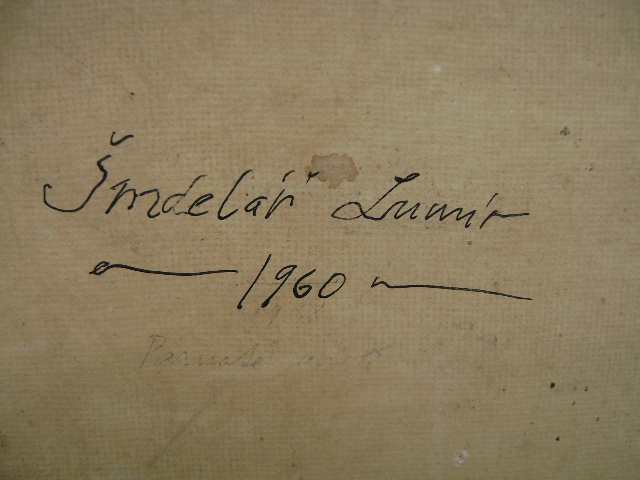 Šindelář Lumír
1960